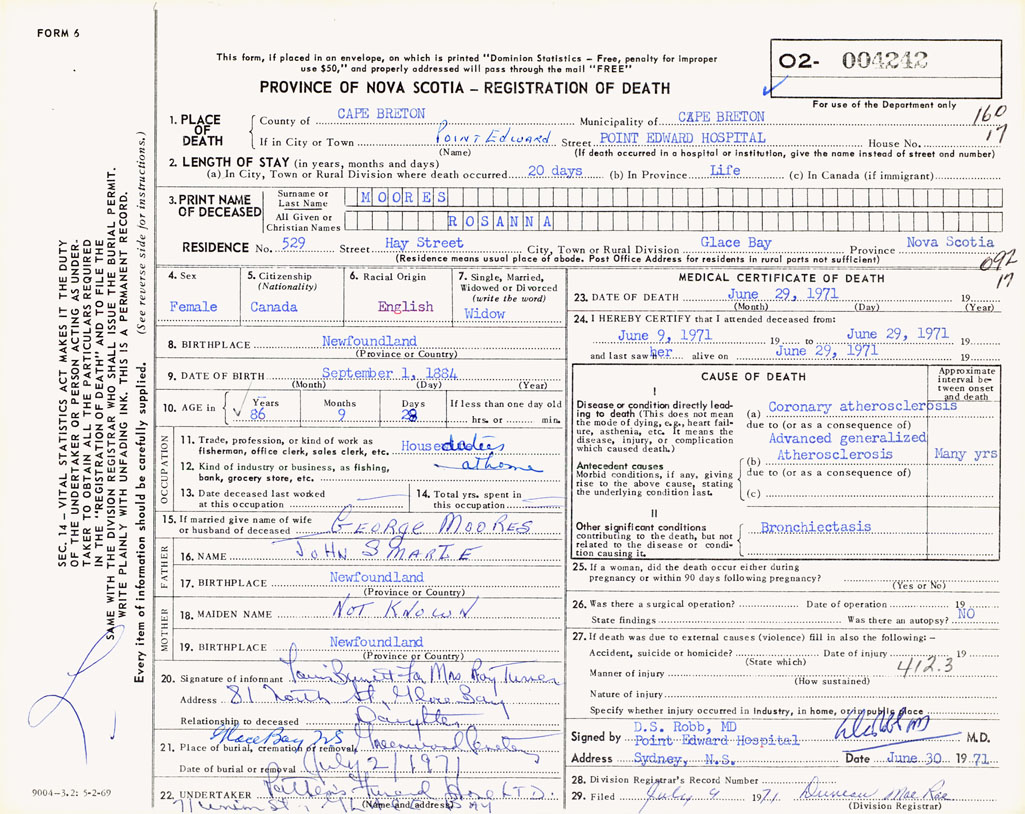 FORM 6
This form, if placed in an envelope, on which is printed "Dominion Statistics – Free, penalty for improper
use $50," and properly addressed will pass through the mail "FREE"
O2- 004242
PROVINCE OF NOVA SCOTIA – REGISTRATION OF DEATH
For use of the Department only
160
17
1. PLACE OF DEATH
County of CAPE BRETON Municipality of CAPE BRETON
If in City or Town POINT EDWARD Street POINT EDWARD HOSPITAL House No.
(Name) (If death occurred in a hospital or institution, give the name instead of street and number)
2. LENGTH OF STAY (in years, months and days)
(a) In City, Town or Rural Division where death occurred 20 days (b) In Province Life (c) In Canada (if immigrant)
3. PRINT NAME OF DECEASED
Surname or Last Name MOORES
All Given or Christian Names ROSANNA
RESIDENCE No. 529 Street Hay Street City, Town or Rural Division Glace Bay Province Nova Scotia
(Residence means usual place of abode. Post Office Address for residents in rural parts not sufficient)
092
17
4. Sex
Female
5. Citizenship
(Nationality)
Canada
6. Racial Origin
English
7. Single, Married,
Widowed or Divorced
(write the word)
Widow
8. BIRTHPLACE Newfoundland
(Province or Country)
9. DATE OF BIRTH September 1, 1884
(Month) (Day) (Year)
10. AGE in Years 86 Months 9 Days 28 If less than one day old
hrs. or min.
OCCUPATION
11. Trade, profession, or kind of work as
fisherman, office clerk, sales clerk, etc. House duties
12. Kind of industry or business, as fishing,
bank, grocery store, etc. at home
13. Date deceased last worked
at this occupation
14. Total yrs. spent in
this occupation
15. If married give name of wife
or husband of deceased GEORGE MOORES
FATHER
16. NAME JOHN SMARTE
17. BIRTHPLACE Newfoundland
(Province or Country)
MOTHER
18. MAIDEN NAME NOT KNOWN
19. BIRTHPLACE Newfoundland
(Province or Country)
20. Signature of informant For Mrs. Ray Turner
Address 81 North St, Glace Bay
Relationship to deceased Daughter
Glace Bay NS
21. Place of burial, cremation or removal Greenwood Cemetery
Date of burial or removal July 2/1971
22. UNDERTAKER Patten's Funeral Home LTD.
(Name and address)
71 Union St.,
MEDICAL CERTIFICATE OF DEATH
23. DATE OF DEATH June 29, 1971 19
(Month) (Day) (Year)
24. I HEREBY CERTIFY that I attended deceased from:
June 9, 1971 19 to June 29, 1971 19
and last saw her alive on June 29, 1971 19
CAUSE OF DEATH
Approximate
interval be-
tween onset
and death
I
Disease or condition directly lead-
ing to death (This does not mean
the mode of dying, e.g., heart fail-
ure, asthenia, etc. It means the
disease, injury, or complication
which caused death.)
(a) Coronary atherosclerosis
due to (or as a consequence of)
Advanced generalized
(b) Atherosclerosis Many yrs
due to (or as a consequence of)
(c)
Antecedent causes
Morbid conditions, if any, giving
rise to the above cause, stating
the underlying condition last.
II
Other significant conditions
contributing to the death, but not
related to the disease or condi-
tion causing it.
Bronchiectasis
25. If a woman, did the death occur either during
pregnancy or within 90 days following pregnancy?
(Yes or No)
26. Was there a surgical operation? Date of operation 19
State findings Was there an autopsy? NO
27. If death was due to external causes (violence) fill in also the following: –
Accident, suicide or homicide? Date of injury 19
(State which)
Manner of injury 412.3
(How sustained)
Nature of injury
Specify whether injury occurred in industry, in home, or in public place
D.S. Robb, MD
Signed by Point Edward Hospital M.D.
Address Sydney, N.S. Date June 30 1971
28. Division Registrar's Record Number
29. Filed July 9 1971 Duncan MacRae
(Division Registrar)
SEC. 14 – VITAL STATISTICS ACT MAKES IT THE DUTY
OF THE UNDERTAKER OR PERSON ACTING AS UNDER-
TAKER TO OBTAIN ALL THE PARTICULARS REQUIRED
IN THE "REGISTRATION OF DEATH" AND TO FILE THE
SAME WITH THE DIVISION REGISTRAR WHO SHALL ISSUE THE BURIAL PERMIT.
WRITE PLAINLY WITH UNFADING INK. THIS IS A PERMANENT RECORD.
Every item of information should be carefully supplied. (See reverse side for instructions.)
9004-3.2: 5-2-69